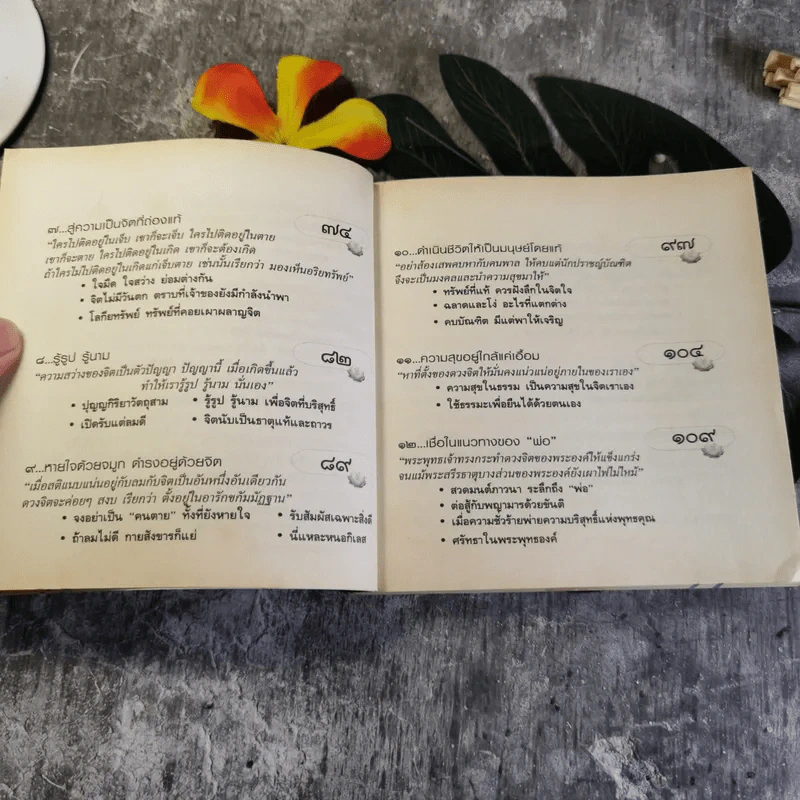 ๗...สู่ความเป็นจิตที่ถ่องแท้ ๗๔
“ใครไปติดอยู่ในเจ็บ เขาก็จะเจ็บ ใครไปติดอยู่ในตาย
เขาก็จะตาย ใครไปติดอยู่ในเกิด เขาก็จะต้องเกิด
ถ้าใครไม่ไปติดอยู่ในเกิดแก่เจ็บตาย เช่นนั้นเรียกว่า มองเห็นอริยทรัพย์”
• ใจมืด ใจสว่าง ย่อมต่างกัน
• จิตไม่มีวันตก ตราบที่เจ้าของยังมีกำลังนำพา
• โลกียทรัพย์ ทรัพย์ที่คอยเผาผลาญจิต
๘...รู้รูป รู้นาม ๘๒
“ความสว่างของจิตเป็นตัวปัญญา ปัญญานี้ เมื่อเกิดขึ้นแล้ว
ทำให้เรารู้รูป รู้นาม นั่นเอง”
• ปุญญกิริยาวัตถุสาม • รู้รูป รู้นาม เพื่อจิตที่บริสุทธิ์
• เปิดรับแต่ลมดี • จิตนับเป็นธาตุแท้และถาวร
๙...หายใจด้วยจมูก ดำรงอยู่ด้วยจิต ๘๙
“เมื่อสติแนบแน่นอยู่กับลมกับจิตเป็นอันหนึ่งอันเดียวกัน
ดวงจิตจะค่อยๆ สงบ เรียกว่า ตั้งอยู่ในอารักขกัมมัฏฐาน”
• จงอย่าเป็น “คนตาย” ทั้งที่ยังหายใจ • รับสัมผัสเฉพาะสิ่งดี
• ถ้าลมไม่ดี กายสังขารก็แย่ • นี่แหละหนอกิเลส
๑๐...ดำเนินชีวิตให้เป็นมนุษย์โดยแท้ ๙๗
“อย่าส้องเสพคบหากับคนพาล ให้คบแต่นักปราชญ์บัณฑิต
จึงจะเป็นมงคลและนำความสุขมาให้”
• ทรัพย์ที่แท้ ควรฝังลึกในจิตใจ
• ฉลาดและโง่ อะไรที่แตกต่าง
• คบบัณฑิต มีแต่พาให้เจริญ
๑๑...ความสุขอยู่ใกล้แค่เอื้อม ๑๐๔
“หาที่ตั้งของดวงจิตให้มั่นคงแน่วแน่อยู่ภายในของเราเอง”
• ความสุขในธรรม เป็นความสุขในจิตเราเอง
• ใช้ธรรมะเพื่อยืนได้ด้วยตนเอง
๑๒...เชื่อในแนวทางของ “พ่อ” ๑๐๙
“พระพุทธเจ้าทรงกระทำดวงจิตของพระองค์ให้แข็งแกร่ง
จนแม้พระสรีรธาตุบางส่วนของพระองค์ยังเผาไฟไม่ไหม้”
• สวดมนต์ภาวนา ระลึกถึง “พ่อ”
• ต่อสู้กับพญามารด้วยขันติ
• เมื่อความชั่วร้ายพ่ายความบริสุทธิ์แห่งพุทธคุณ
• ศรัทธาในพระพุทธองค์